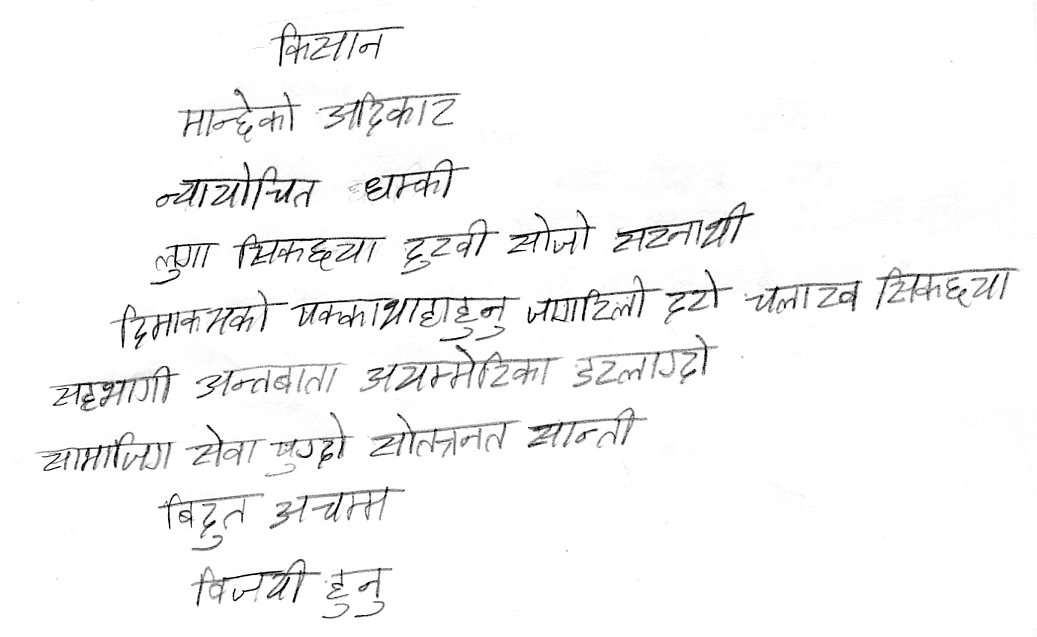 किसान
मान्छेको अदिकार
न्यायोचित धम्की
लुगा सिकछ्या टुरवी सोजो सरनाथी
दिमाकमको पक्काथाहाहुनु जगारिलो दरो चलाख सिकछ्या
सहभागी अन्तबाता अयम्मेरिका डरलाग्दो
सामाजिग सेवा पुग्दो सोतन्त्रनत सान्ती
बिदुत अचम्म
विजयी हुनु